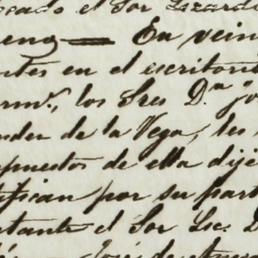 cado el Sor Lizardi
En vein
ntes en el escritori
rm.s, los Sres D.n
nder de la Vega, les
puestos de ella dije
tifican por su part
tante el Sor Lic. D